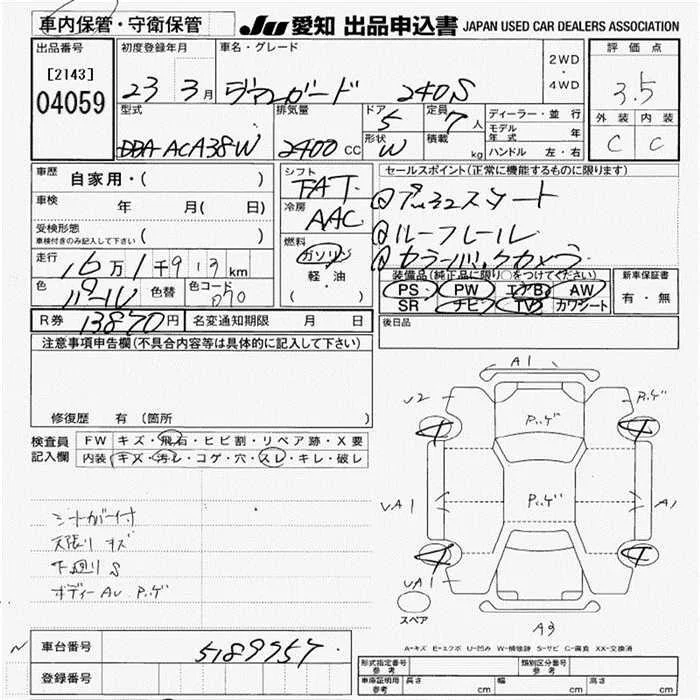 車内保管・守衛保管 JU 愛知 出品申込書 JAPAN USED CAR DEALERS ASSOCIATION
出品番号 初度登録年月 車名・グレード 2WD・4WD 評価点
[2143] 04059 23 3月 ヴァンガード 240S 3.5
型式 排気量 ドア 5 定員 7人 ディーラー・並行 外装 内装
モデル年式 年 C C
DBA-ACA38W 2400 CC 形状 W 積載 kg ハンドル 左・右
車歴 自家用・( ) シフト FAT セールスポイント(正常に機能するものに限ります)
車検 年 月( 日) 冷房 AAC
受検形態 車検付きのみ記入して下さい ( ) ②ルーフレール
走行 16万1千913km 燃料 ガソリン 軽・油 ( ) ③カラーバックカメラ
装備品(純正品に限り○をつけてください) 新車保証書
色 パール 色替 色コード 070 PS PW エアB AW 有・無
SR ナビ TV カワシート
R券 13870円 名変通知期限 月 日 後日品
注意事項申告欄(不具合内容等は具体的に記入して下さい)
修復歴 有 (箇所 )
検査員記入欄 FW キズ・飛石・ヒビ割・リペア跡・X要
内装 キズ・汚レ・コゲ・穴・スレ・キレ・破レ
シートカバー付
天張り キズ
下廻りS
ボディーAU P.ゲ
A1
U2 P.ゲ
P.ゲ
UA1 P.ゲ A1
UA1
スペア A3
A-キズ E-エクボ U-凹み W-補修跡 S-サビ C-腐食 XX-交換済
車台番号 5189957
登録番号
形式指定番号 参考 類別区分番号 参考
車庫証明用 参考 長さ cm 幅 cm 高さ cm